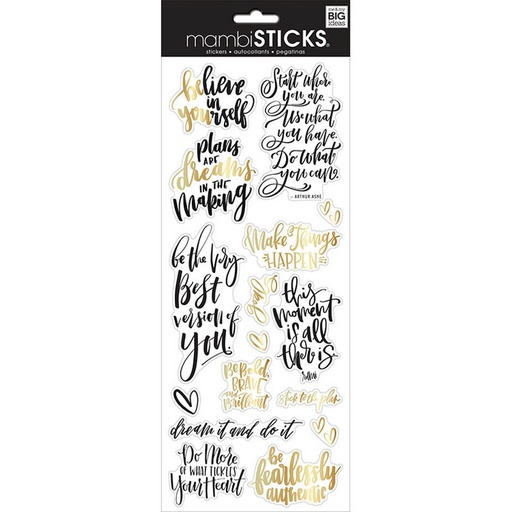 me&my
BIG
ideas
mambiSTICKS®
stickers • autocollants • pegatinas
believe
in
yourself
Start where
you are.
Use what
you have.
Do what
you can.
- ARTHUR ASHE
plans
ARE
dreams
IN THE
making
Make Things
HAPPEN
be the very
Best
version of
you.
goals
this
moment
is all
there is.
RUMI
Be Bold,
BRAVE
and
Brilliant
stick to the plan
dream it and do it
Do More
OF WHAT TICKLES
Your Heart
be
fearlessly
authentic